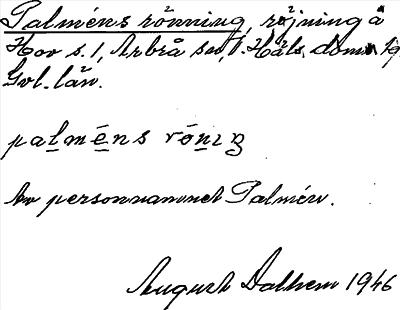 Palméns rönning, röjning å
Hov s. 1, Arbrå sn, V. Häls. doms.
Gvl. län.
palméns rönıŋ
Av personnamnet Palmén.
August Dalhem 1946